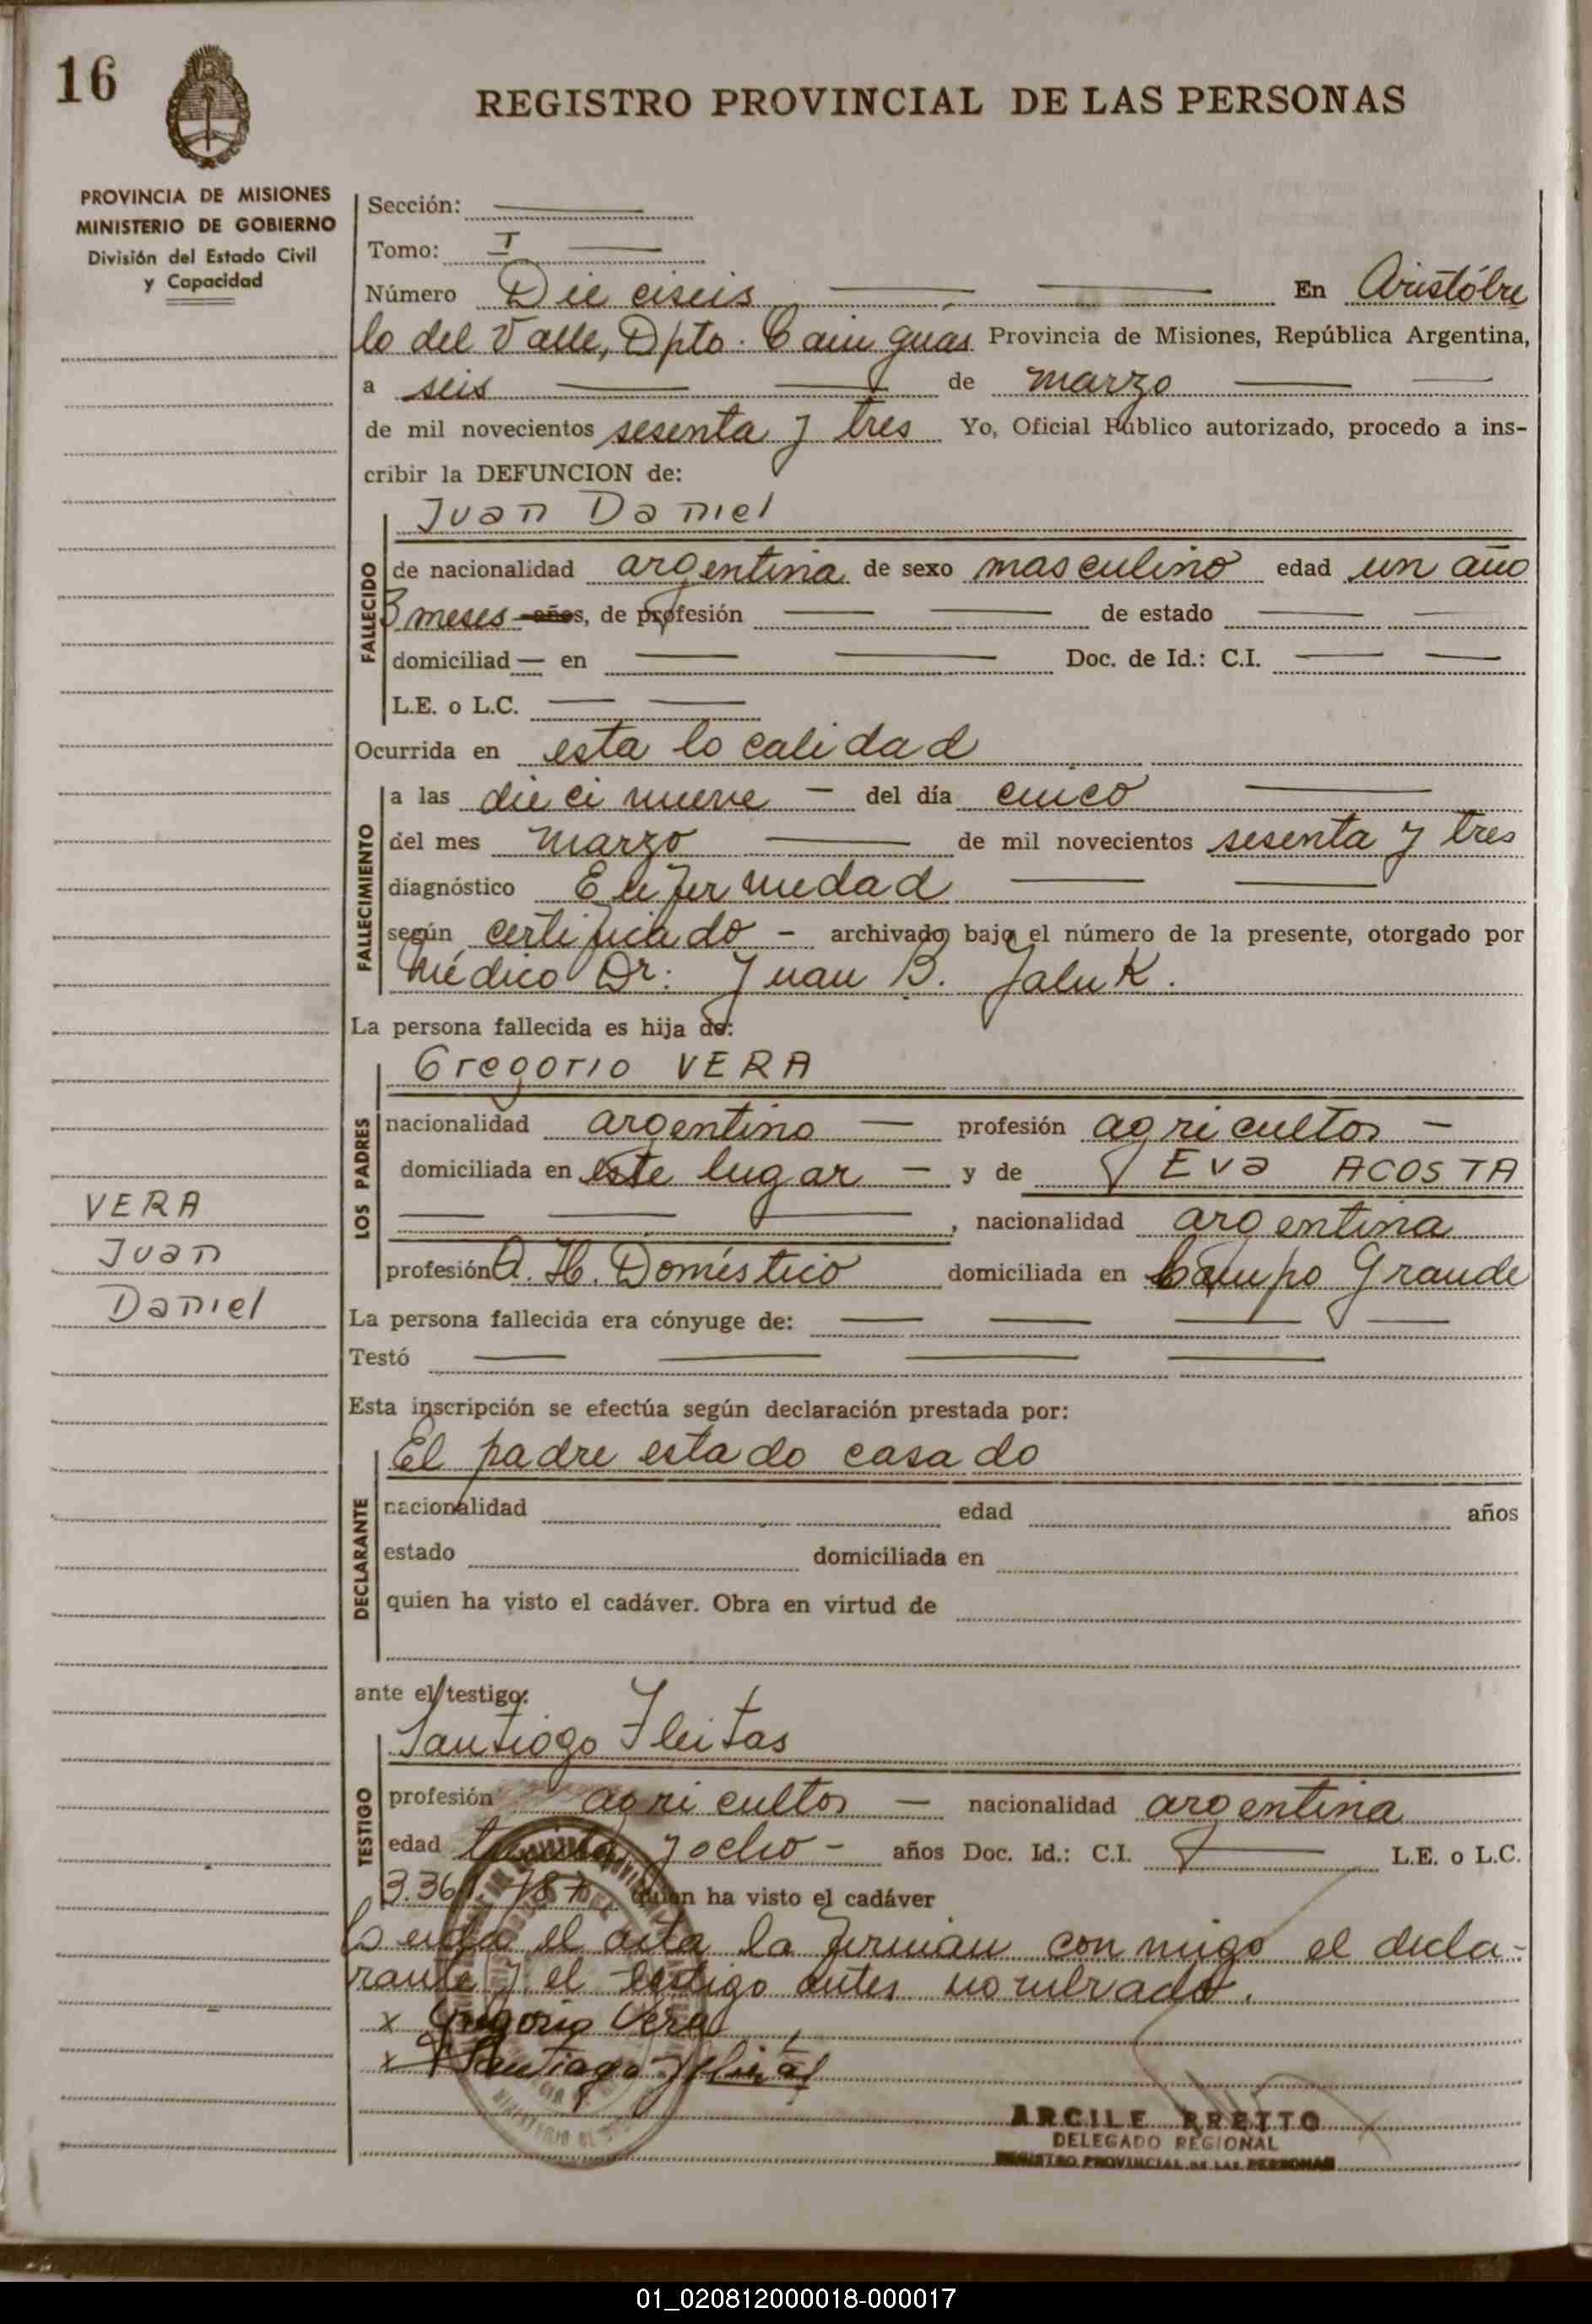 16
REGISTRO PROVINCIAL DE LAS PERSONAS
PROVINCIA DE MISIONES
MINISTERIO DE GOBIERNO
División del Estado Civil
y Capacidad
Sección:
Tomo: I
Número Dieciseis En Aristóbu
lo del Valle, Dpto. Cainguas Provincia de Misiones, República Argentina,
a seis de marzo
de mil novecientos sesenta y tres Yo, Oficial Público autorizado, procedo a ins-
cribir la DEFUNCION de:
Juan Daniel
FALLECIDO
de nacionalidad argentina de sexo masculino edad un año
3 meses años, de profesión de estado
domiciliad — en Doc. de Id.: C.I.
L.E. o L.C.
Ocurrida en esta localidad
FALLECIMIENTO
a las diecinueve - del día cinco
del mes marzo de mil novecientos sesenta y tres
diagnóstico Enfermedad
según certificado - archivado bajo el número de la presente, otorgado por
Médico Dr: Juan B. Jaluk.
La persona fallecida es hija de:
Gregorio VERA
LOS PADRES
nacionalidad argentino — profesión agricultor -
domiciliada en este lugar - y de Eva ACOSTA
, nacionalidad argentina
profesión Q. H. Doméstico domiciliada en Campo Grande
VERA
Juan
Daniel
La persona fallecida era cónyuge de:
Testó
Esta inscripción se efectúa según declaración prestada por:
El padre estado casado
DECLARANTE
nacionalidad edad años
estado domiciliada en
quien ha visto el cadáver. Obra en virtud de
ante el testigo:
Santiago Fleitas
TESTIGO
profesión agricultor — nacionalidad argentina
edad treinta y ocho - años Doc. Id.: C.I. L.E. o L.C.
quien ha visto el cadáver
Leida el acta la firman conmigo el decla-
rante y el testigo antes nombrado.
x Gregorio Vera
x Santiago Fleitas
ARCILE BRETTO
DELEGADO REGIONAL
REGISTRO PROVINCIAL DE LAS PERSONAS
01_020812000018-000017